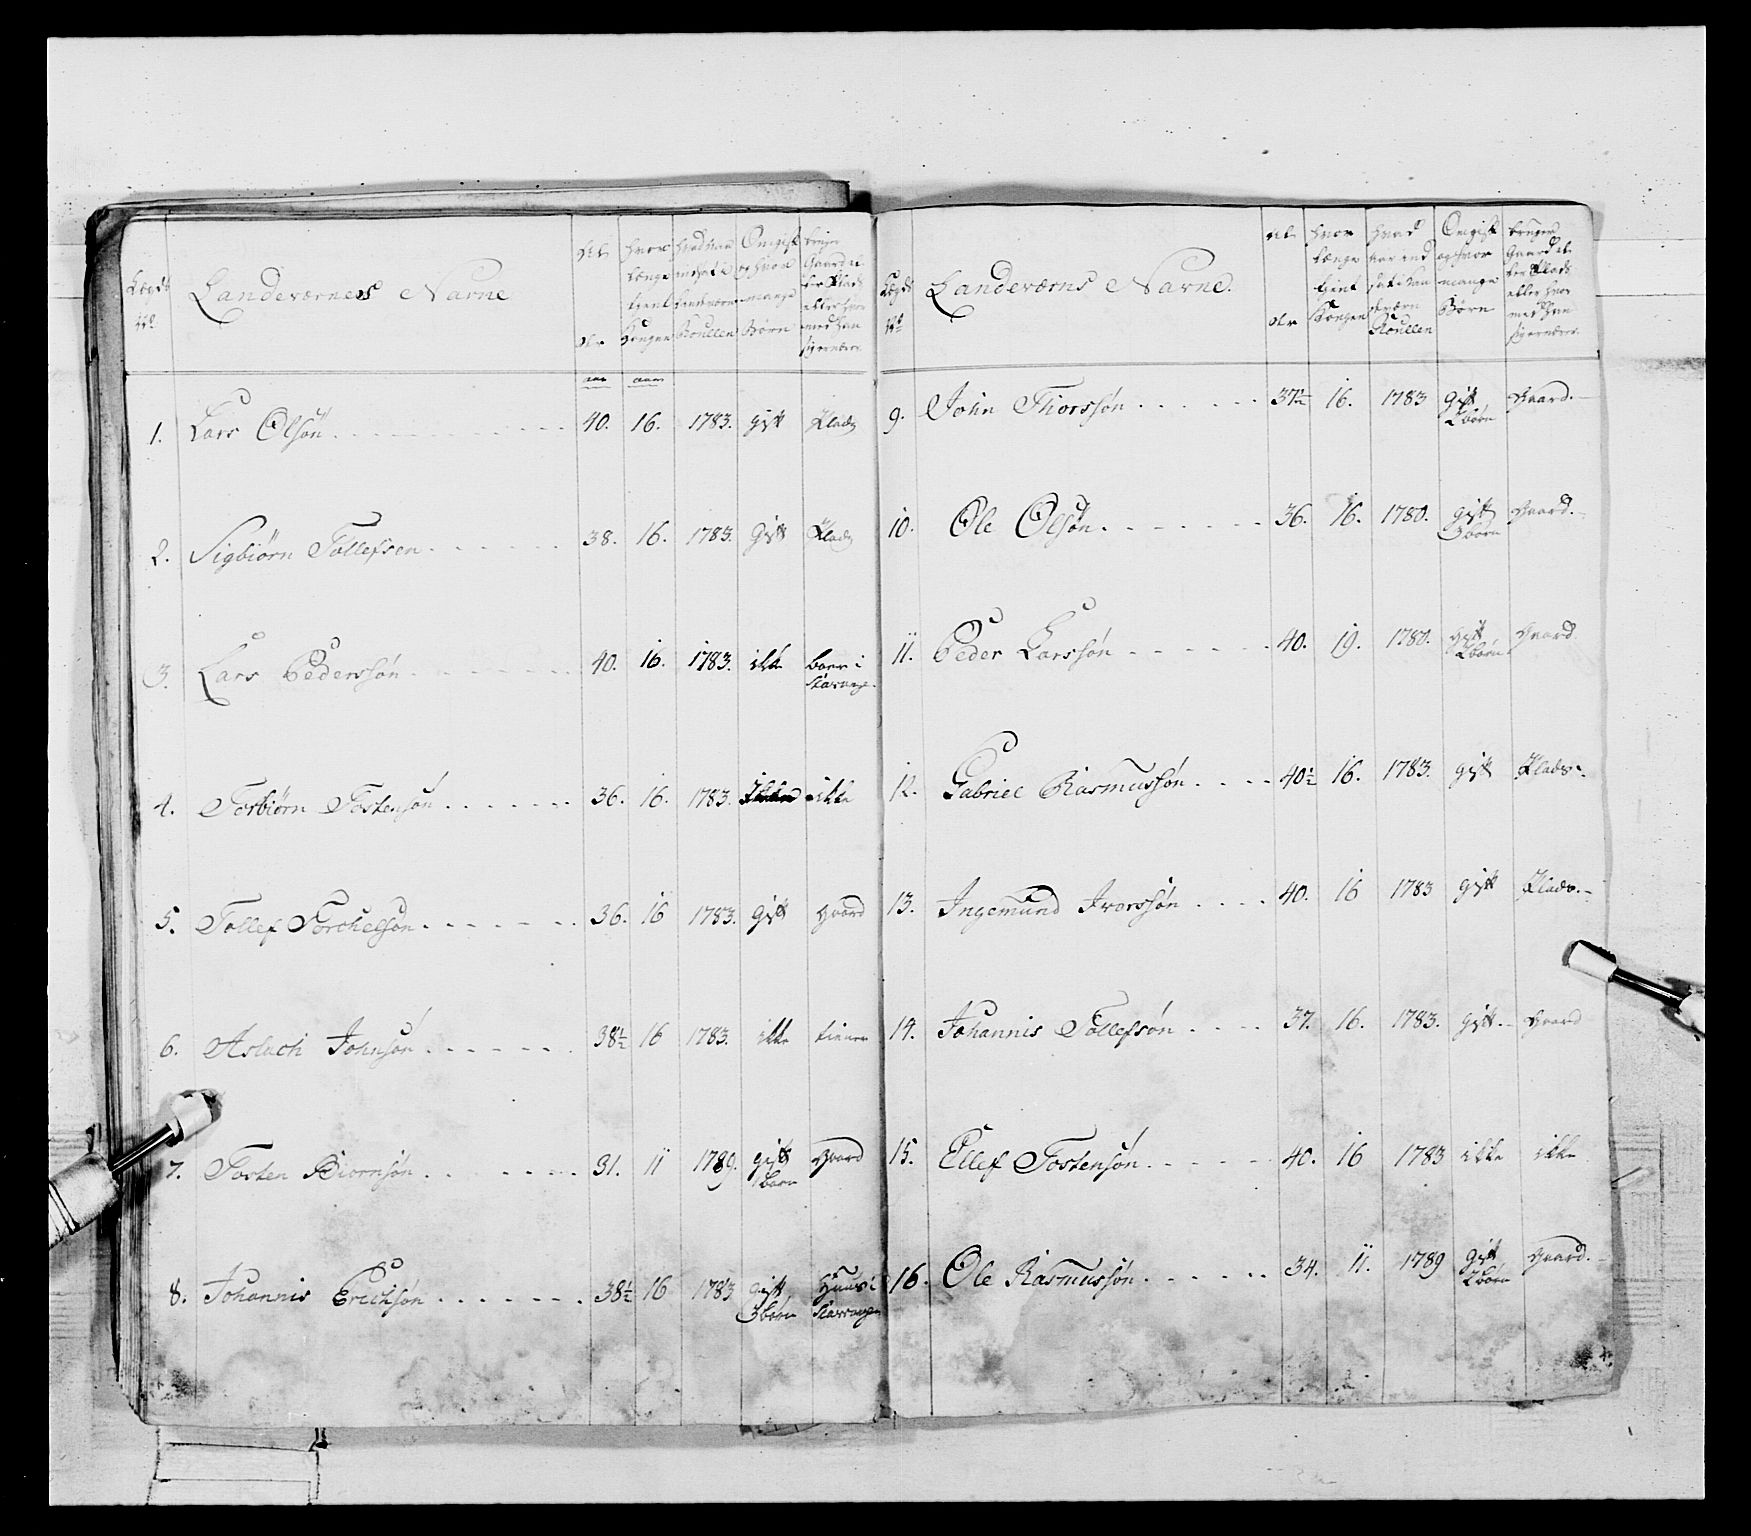 Lægds No. Landeværnes Navne Al der hvor længe tient Kongen hvad aar indsat i Landeværn Roullen Om gift og hvor mange Børn bruger Gaard el ler Plads eller hvor med han sig ernærer
aar aar
1. Lars Olsøn 40. 16. 1783. gift Plads
2. Sigbiørn Tollefsen 38. 16. 1783. gift Plads
3. Lars Pederssøn 40. 16. 1783. ikke boer i Stavange.
4. Torbiørn Tostensøn 36. 16. 1783. ikke
5. Tollef Torchelsøn 36. 16 1783. gift Gaard
6. Aslach Johnsøn 38½ 16 1783. ikke tiener
7. Tosten Biornsøn 31. 11 1789. gift 1 børn Gaard
8. Johannis Erichsøn 38½ 16 1783 gift 3 børn Huus i Stavanger
Lægds No. Landeværns Navne. Al der hvor længe tient Kongen hvad aar ind sat i Lan deværn Roullen Om gift og hvor mange Børn bruger Gaard el ler Plads eller hvor med han sig ernærer.
9. John Thorssøn 37½ 16. 1783 gift 2 børn Gaard.
10. Ole Olsøn 36. 16. 1780. gift 3 børn Gaard.
11. Peder Larssøn 40. 19. 1780. gift 2 børn Gaard
12. Gabriel Rasmussøn 40½ 16. 1783. gift Plads.
13. Ingemund Ivorssøn 40. 16 1783 gift Plads.
14. Johannis Tollefsøn 37. 16. 1783. gift. Gaard
15. Ellef Tostensøn 40. 16 1783 ikke ikke
16. Ole Rasmussøn 34. 11. 1789 gift 2 børn Gaard.